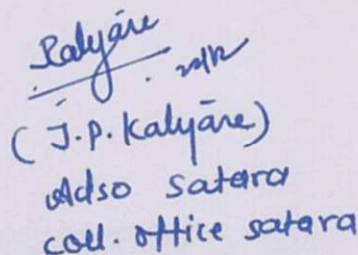 Kalyāre
21/12
( J.P. Kalyāre)
Adso Satara
coll. office satara